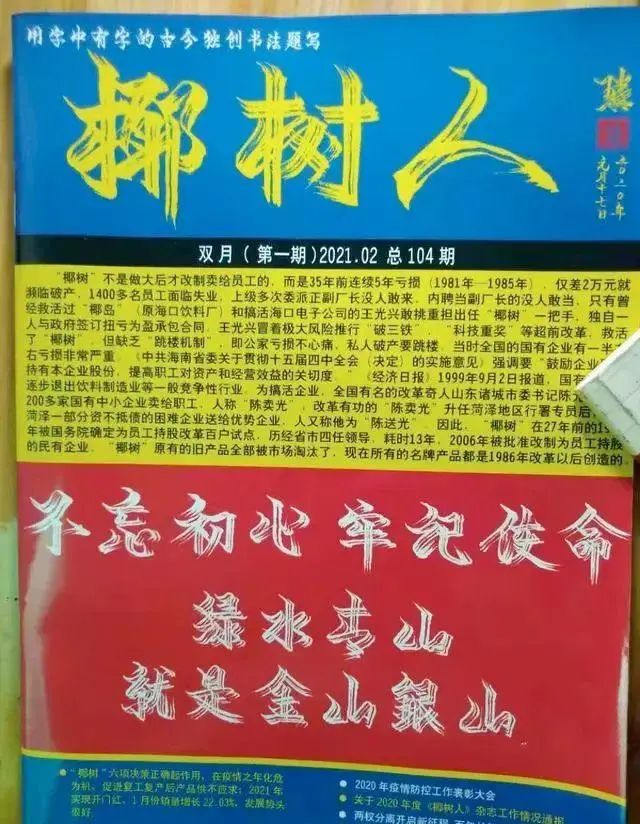 用字中有字的古今独创书法题写
椰树人
二〇二〇年
元月十七日
双月（第一期）2021.02 总104期
“椰树”不是做大后才改制卖给员工的，而是35年前连续5年亏损（1981年—1985年），仅差2万元就
濒临破产，1400多名员工面临失业，上级多次委派正副厂长没人敢来，内聘当副厂长的没人敢当，只有曾
经救活过“椰岛”（原海口饮料厂）和搞活海口电子公司的王光兴敢挑重担出任“椰树”一把手，独自一
人与政府签订扭亏为盈承包合同，王光兴冒着极大风险推行“破三铁”，“科技重奖”等超前改革，救活
了“椰树”，但缺乏“跳楼机制”，即公家亏损不心痛，私人破产要跳楼，当时全国的国有企业有一半左
右亏损非常严重，《中共海南省委关于贯彻十五届四中全会（决定）的实施意见》强调要“鼓励企业
持有本企业股份，提高职工对资产和经营效益的关切度，《经济日报》1999年9月2日报道，国
逐步退出饮料制造业等一般竞争性行业，为搞活企业，全国有名的改革奇人山东诸城市委书记陈
200多家国有中小企业卖给职工，人称“陈卖光”，改革有功的“陈卖光”升任菏泽地区行署专员后
菏泽一部分资不抵债的困难企业送给优势企业，人又称他为“陈送光”，因此，“椰树”在27年前的
年被国务院确定为员工持股改革百户试点，历经省市四任领导，耗时13年，2006年被批准改制为员工持股
的民有企业，“椰树”原有的旧产品全部被市场淘汰了，现在所有的名牌产品都是1986年改革以后创造的
不忘初心 牢记使命
绿水青山
就是金山銀山
“椰树”六项决策正确起作用，在疫情之年化危
为机，促进复工复产后产品供不应求；2021年
实现开门红，1月份销量增长22.03%，发展势头
很好
2020年疫情防控工作表彰大会
关于2020年度《椰树人》杂志工作情况通报
两权分离开启新征程